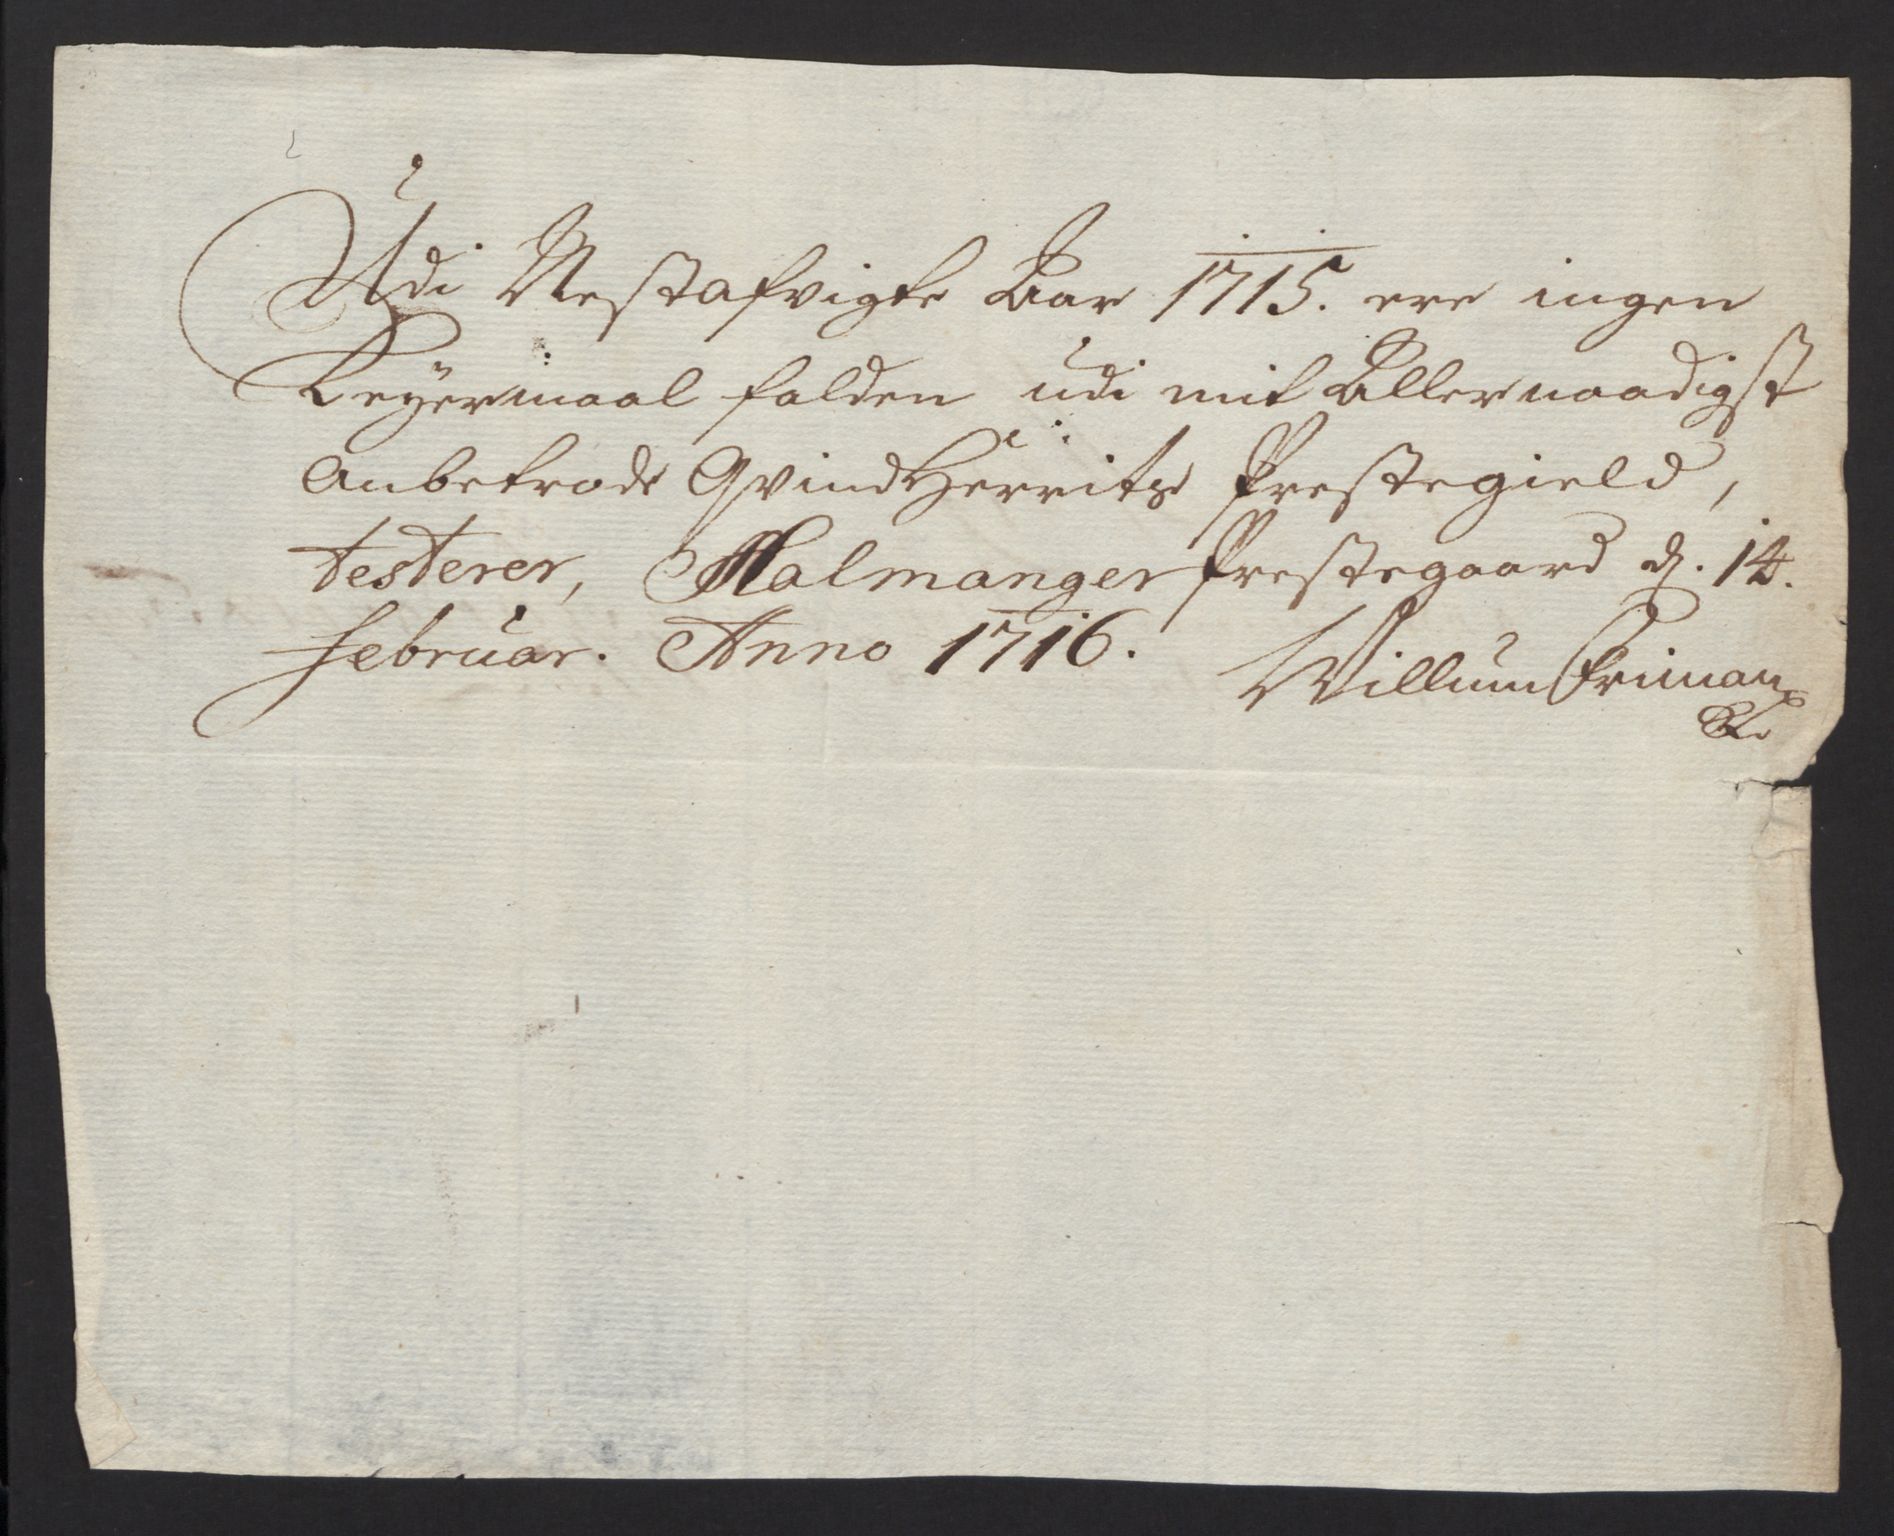 Udi Nestafvigte Aar 1715. ere ingen
Leyermaal falden udi mit Allernaadigst
Anbetrode Qvindherrits Prestegield,
testerer, Malmanger Prestegaard d. 14.
Februar. Anno 1716.
Willum Friman